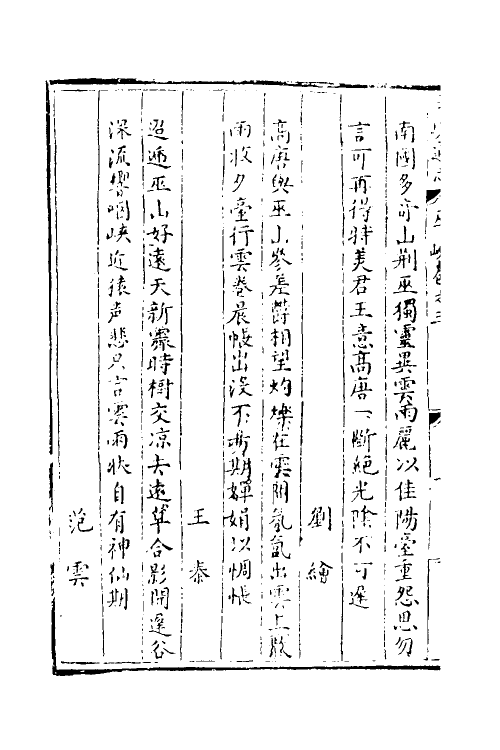 南國多奇山荆巫獨靈異雲雨麗以佳陽臺重怨思勿
言可再得特美君王意高唐一斷絕光陰不可遲
劉繪
高唐與巫山參差欝相望灼爍在雲間氛氳出雲上散
雨收夕臺行雲卷晨帳出沒不易期嬋娟以惆悵
王泰
迢遞巫山好遠天新霽時樹交凉去遠草合影開遲谷
深流響咽峽近猿声悲只言雲雨狀自有神仙期
范雲